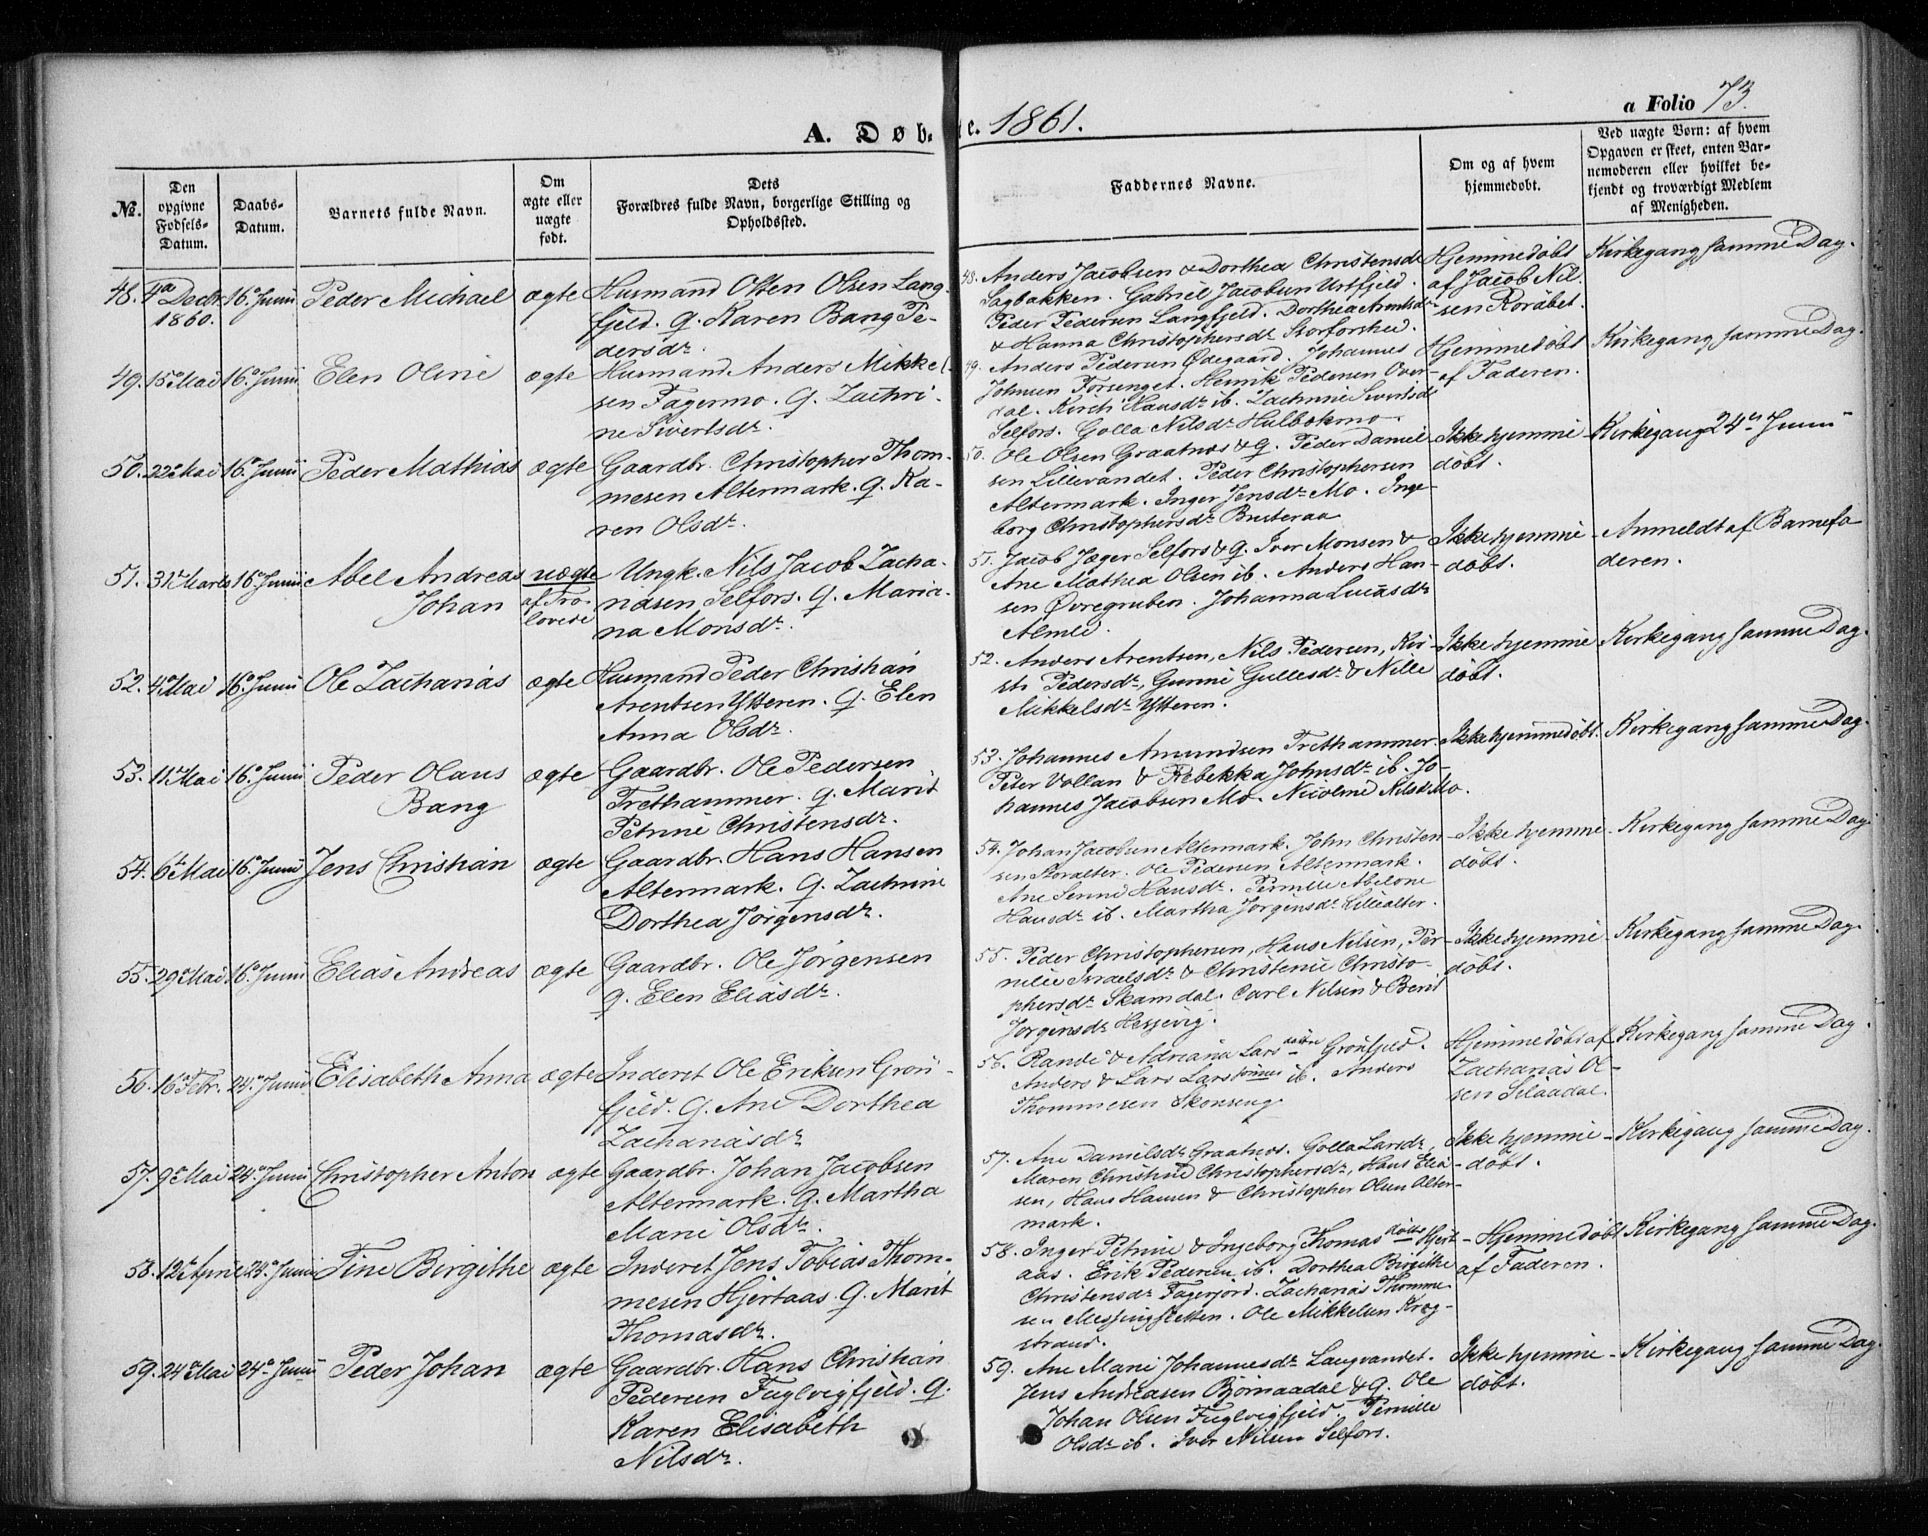 A. Døb-
te. 1861.
a Folio 73.
No.
Den
opgivne
Fødsels-
Datum.
Daabs-
Datum.
Barnets fulde Navn.
Om
ægte eller
uægte
født.
Dets
Forældres fulde Navn, borgerlige Stilling og
Opholdssted.
Faddernes Navne.
Om og af hvem
hjemmedøbt.
Ved uægte Børn: af hvem
Opgaven er skeet, enten Bar-
nemoderen eller hvilket be-
kjendt og troværdigt Medlem
af Menigheden.
48. 4de Decbr. 16de Junii Peder Michael ægte Husmand Osten Olsen Lang-
1860. fjeld. G. Karen Bang Pe-
dersdr.
48. Anders Jacobsen & Dorthea Christensdr
Sagbakken. Gabriel Jacobsen Urtfjeld.
Peder Pedersen Langfjeld. Dorthea Arntsdr
& Hanna Christophersdr Storforshei.
Hjemmedøbt
af Jacob Nil-
sen Roråbet.
Kirkegang samme Dag.
49. 15de Mai 16de Junii Elen Oline ægte Husmand Anders Mikkel-
sen Fagermo. G. Zachri-
ne Sivertsdr.
49. Anders Pedersen Ødegaard. Johannes
Johnsen Forsenget. Henrik Pedersen Over-
dal. Kirsti Hansdr ib. Zachrine Sivertsdr
Selfors. Golla Nilsdr Hulbækmo.
Hjemmedøbt
af Faderen.
Kirkegang samme Dag.
50. 22de Mai 16de Junii Peder Mathias ægte Gaardbr. Christopher Thom-
mesen Altermark. G. Ka-
ren Olsdr.
50. Ole Olsen Graatnæs & G. Peder Daniel-
sen Lillevandet. Peder Christophersen
Altermark. Inger Jensdr Mo. Inge-
borg Christophersdr Busteraa
Ikke hjemme-
døbt.
Kirkegang 24de Junii
51. 31te Marts 16de Junii Abel Andreas uægte Ungk. Nils Jacob Zacha-
Johan af Tro- riasen Selfors. G. Maria-
lovede na Monsdr.
51. Jacob Jæger Selfors & G. Iver Monsen &
Ane Mathea Olsen ib. Anders Han-
sen Øvregruben. Johanna Lucasdr
Almli.
Ikke hjemme-
døbt.
Anmeldt af Barnefa-
deren.
52. 4de Mai 16de Junii Ole Zacharias ægte Husmand Peder Christian
Arentsen Ytteren. G. Elen
Anna Olsdr.
52. Anders Arentsen, Nils Pedersen, Kir-
sti Pedersdr, Gurine Gullesdr & Nille
Mikkelsdr Ytteren.
Ikke hjemme
døbt.
Kirkegang samme Dag.
53. 11te Mai 16de Junii Peder Olaus ægte Gaardbr. Ole Pedersen
Bang Trethammer. G. Marit
Petrine Christensdr.
53. Johannes Amundsen Trethammer
Peter Vollan & Rebekka Johnsdr ib. Jo-
hannes Jacobsen Mo. Nicoline Nilsd Mo.
Ikke hjemmedøbt.
Kirkegang samme Dag.
54. 6te Mai 16de Junii Jens Christian ægte Gaardbr. Hans Hansen
Altermark. G. Zachrine
Dorthea Jørgensdr.
54. Johan Jacobsen Altermark. John Christen
sen Storalter. Ole Pedersen Altermark.
Ane Serine Hansdr. Pernille Abelone
Hansdr ib. Martha Jørgensdr Lillealter.
Ikke hjemme-
døbt.
Kirkegang samme Dag
55. 29de Mai 16de Junii Elias Andreas ægte Gaardbr. Ole Jørgensen
G. Elen Eliasdr.
55. Peder Christophersen, Hans Nilsen, Per-
nille Israelsdr & Christense Christo-
phersdr Skamdal. Carl Nilsen & Berit
Jørgensdr Hessevig.
Ikke hjemme
døbt.
Kirkegang samme Dag.
56. 16de Febr. 24de Junii Elisabeth Anna ægte Inderst Ole Eriksen Grøn-
fjeld. G. Ane Dorthea
Zachariasdr
56. Randi & Adriana Lars døttre Grønfjeld.
Anders & Lars Lars sønner ib. Anders
Thommesen Skonseng
Hjemmedøbt af
Zacharias Ol-
sen Selaadal.
Kirkegang samme Dag.
57. 9de Mai 24de Junii Christopher Anton ægte Gaardbr. Johan Jacobsen
Altermark. G. Martha
Marie Olsdr.
57. Ane Danielsdr Graatnæs. Golla Larsdr,
Maren Christine Christophersdr, Hans Elia-
sen, Hans Hansen & Christopher Olsen Alter-
mark.
Ikke hjemme-
døbt.
Kirkegang samme Dag.
58. 12te April 24de Junii Tine Birgithe ægte Inderst Jens Tobias Thom-
mesen Hjertaas. G. Marit
Thomasdr.
58. Inger Petrine & Ingeborg Thomas døttre Hjert
aas. Erik Pedersen ib. Dorthea Birgithe
Christensdr Fagerjord. Zacharias Thomme-
sen Messingsletten. Ole Mikkelsen Kræg-
strand.
Hjemmedøbt
af Faderen.
Kirkegang samme Dag.
59. 24de Mai 24de Junii Peder Johan ægte Gaardbr. Hans Christian
Pedersen Fuglvigfjeld. G.
Karen Elisabeth
Nilsdr.
59. Ane Marie Johannesdr Langvandet.
Jens Andreasen Bjørnaadal & G. Ole
Johan Olsen Fuglvigfjeld. Pernille
Olsdr ib. Iver Nilsen Selfors.
Ikke hjemme-
døbt.
Kirkegang samme Dag.